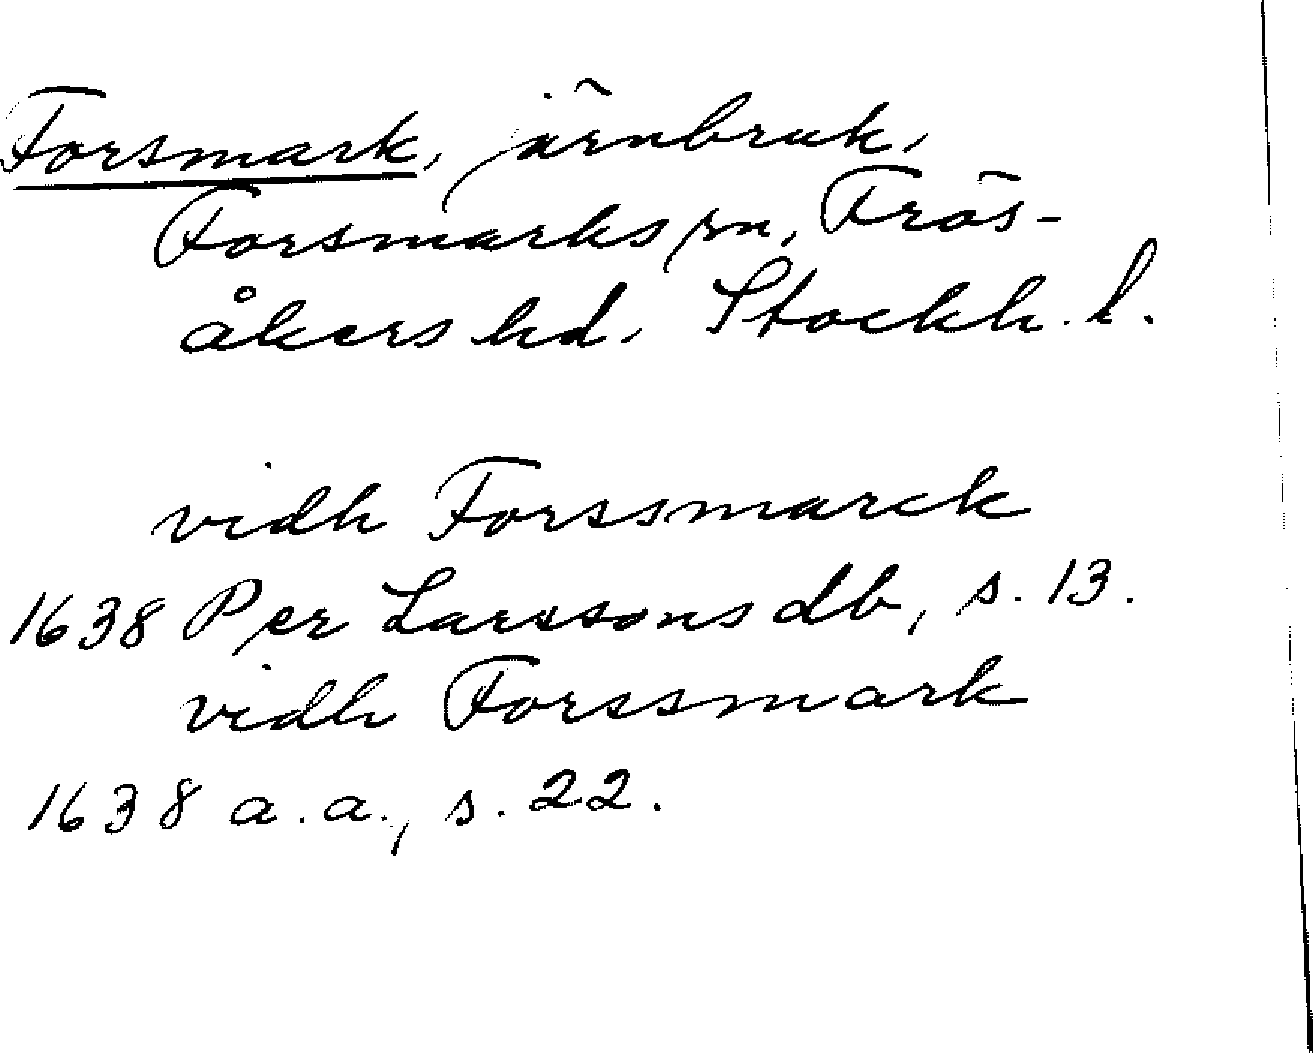 Forsmark, järnbruk,
Forsmarks sn, Frös-
åkers hd, Stockh. l.
vidh Forssmarck
1638 Per Larssons db, s. 13.
vidh Forssmark
1638 a.a., s. 22.